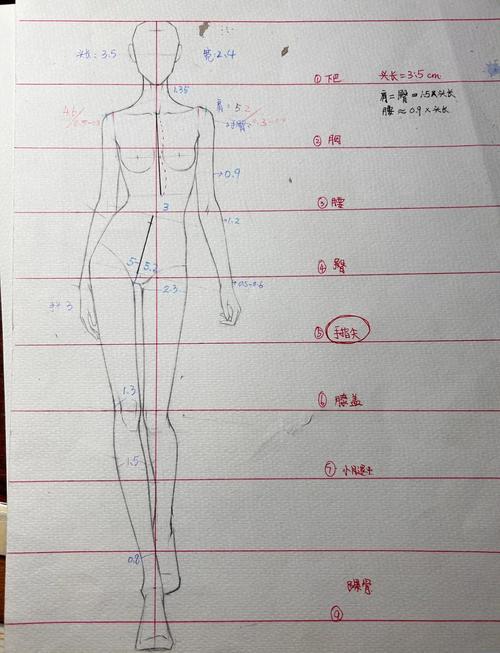 头长：3.5
宽：2.4
①下巴
头长=3.5cm
1.35
肩=臀=1.5×头长
腰≈0.9×头长
肩：5.2
②胸
0.9
③腰
3
1.2
④臀
5
5.2
2.3
手 3
⑤手指尖
1.3
⑥膝盖
1.5
⑦小腿
0.8
踝骨
⑨